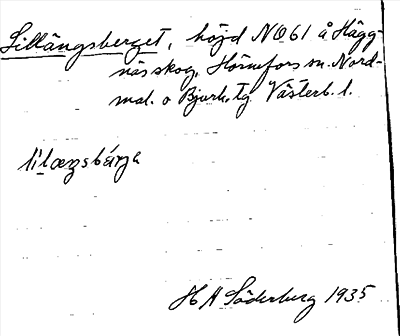 Lillängsberget, höjd NO 61 å Hägg-
näs skog, Hörnefors sn. Nord-
mal. o Bjurh. tg Västerb. l.
lìlæŋsbárja
H A Söderberg 1935